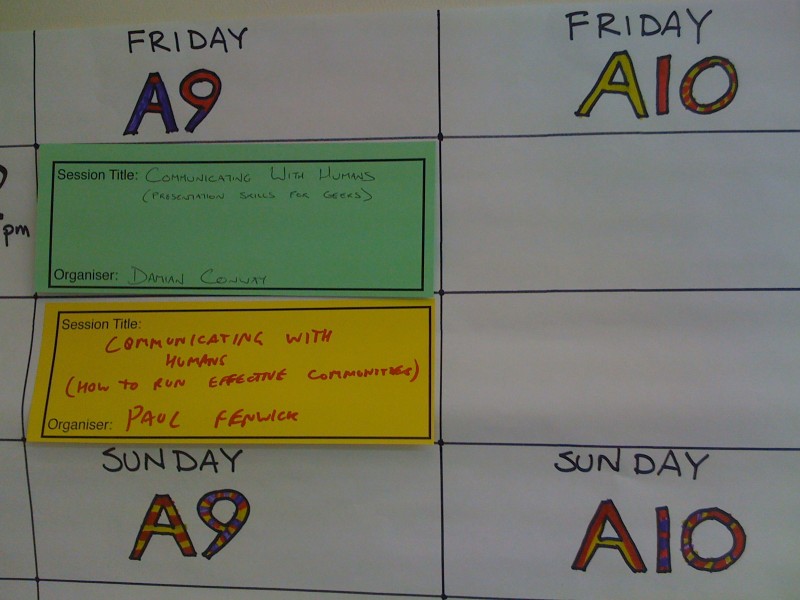 FRIDAY
A9
FRIDAY
A10
pm
Session Title: COMMUNICATING WITH HUMANS
(PRESENTATION SKILLS FOR GEEKS)
Organiser: DAMIAN CONWAY
Session Title:
COMMUNICATING WITH
HUMANS
(HOW TO RUN EFFECTIVE COMMUNITIES)
Organiser: PAUL FENWICK
SUNDAY
A9
SUNDAY
A10